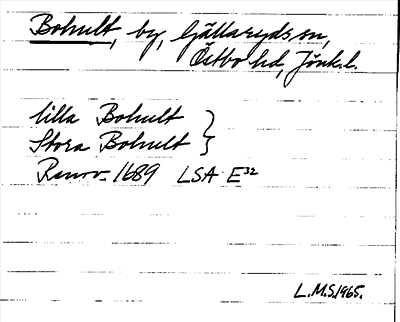 Bohult, by, Gällaryds sn,
Östbo hd, Jönk. l.
Lilla Bohult
Stora Bohult }
Ransv. 1689 LSA E³²
L.M.S. 1965.